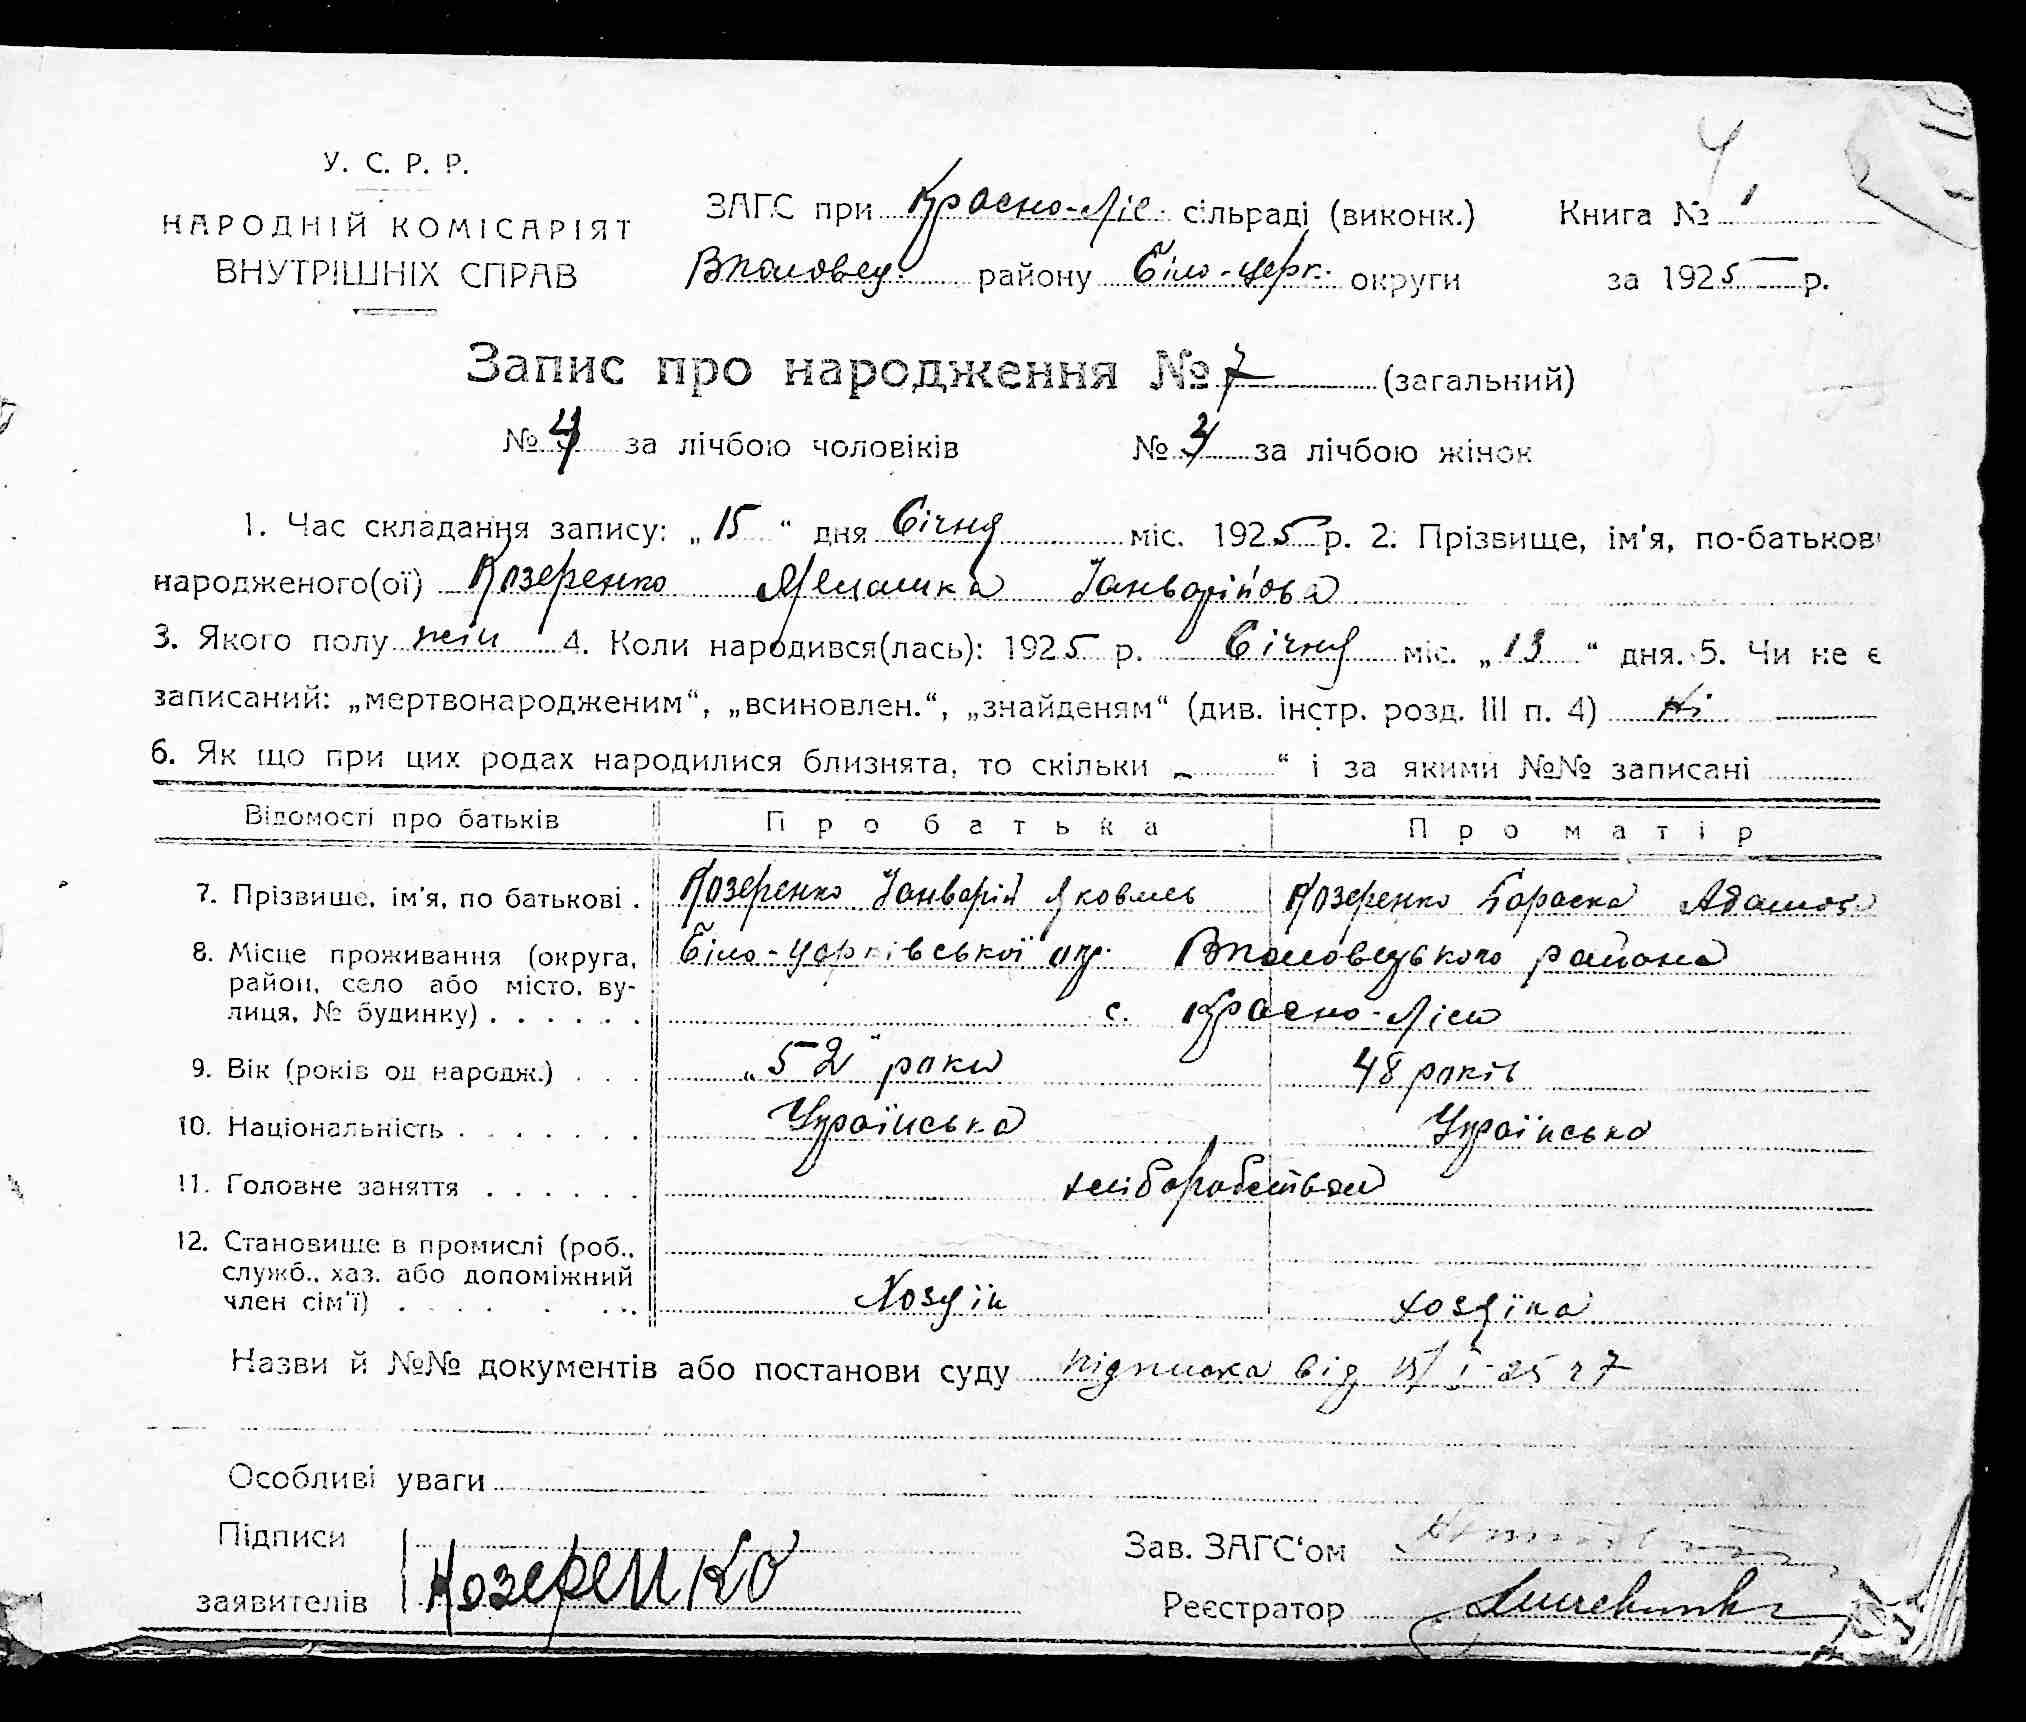 У. С. Р. Р.
НАРОДНІЙ КОМІСАРІЯТ
ВНУТРІШНІХ СПРАВ
ЗАГС при Красно-Ліс. сільраді (виконк.) Книга № 1
району Біло-церк. округи за 1925 р.
Запис про народження № 7 (загальний)
№ 4 за лічбою чоловіків № 3 за лічбою жінок
1. Час складання запису: „ 15 “ дня Січня міс. 1925 р. 2. Прізвище, ім'я, по-батькові
народженого(ої) Козеренко Меланка Январійова
3. Якого полу жін 4. Коли народився(лась): 1925 р. Січня міс. „ 13 “ дня. 5. Чи не є
записаний: „мертвонародженим“, „всиновлен.“, „знайденям“ (див. інстр. розд. III п. 4) Ні
6. Як що при цих родах народилися близнята, то скільки „ “ і за якими №№ записані
Відомості про батьків Про батька Про матір
7. Прізвище, ім'я, по батькові . Козеренко Январій Яковлев Козеренко Параска Адамова
8. Місце проживання (округа, район, село або місто, вулиця, № будинку) . . . . . . Біло-Церківської окр. района
с. Красно-Ліси
9. Вік (років од народж.) . . . „52" роки 48 років
10. Національність . . . . . . . Українська Українська
11. Головне заняття . . . . . . хліборобством
12. Становище в промислі (роб., служб., хаз. або допоміжний член сім'ї) . . . . Хозяїн хозяїка
Назви й №№ документів або постанови суду підписка від 15/I-25 г 7
Особливі уваги
Підписи
заявителів Козеренко
Зав. ЗАГС'ом
Реєстратор